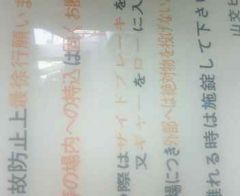 故防止上最徐行願いま
の場内への持込は固くお
際はサイドブレーキを
又ギャーをローに入
場につき外部へは絶対物を投げない
れる時は施錠して下さ
山交ビ